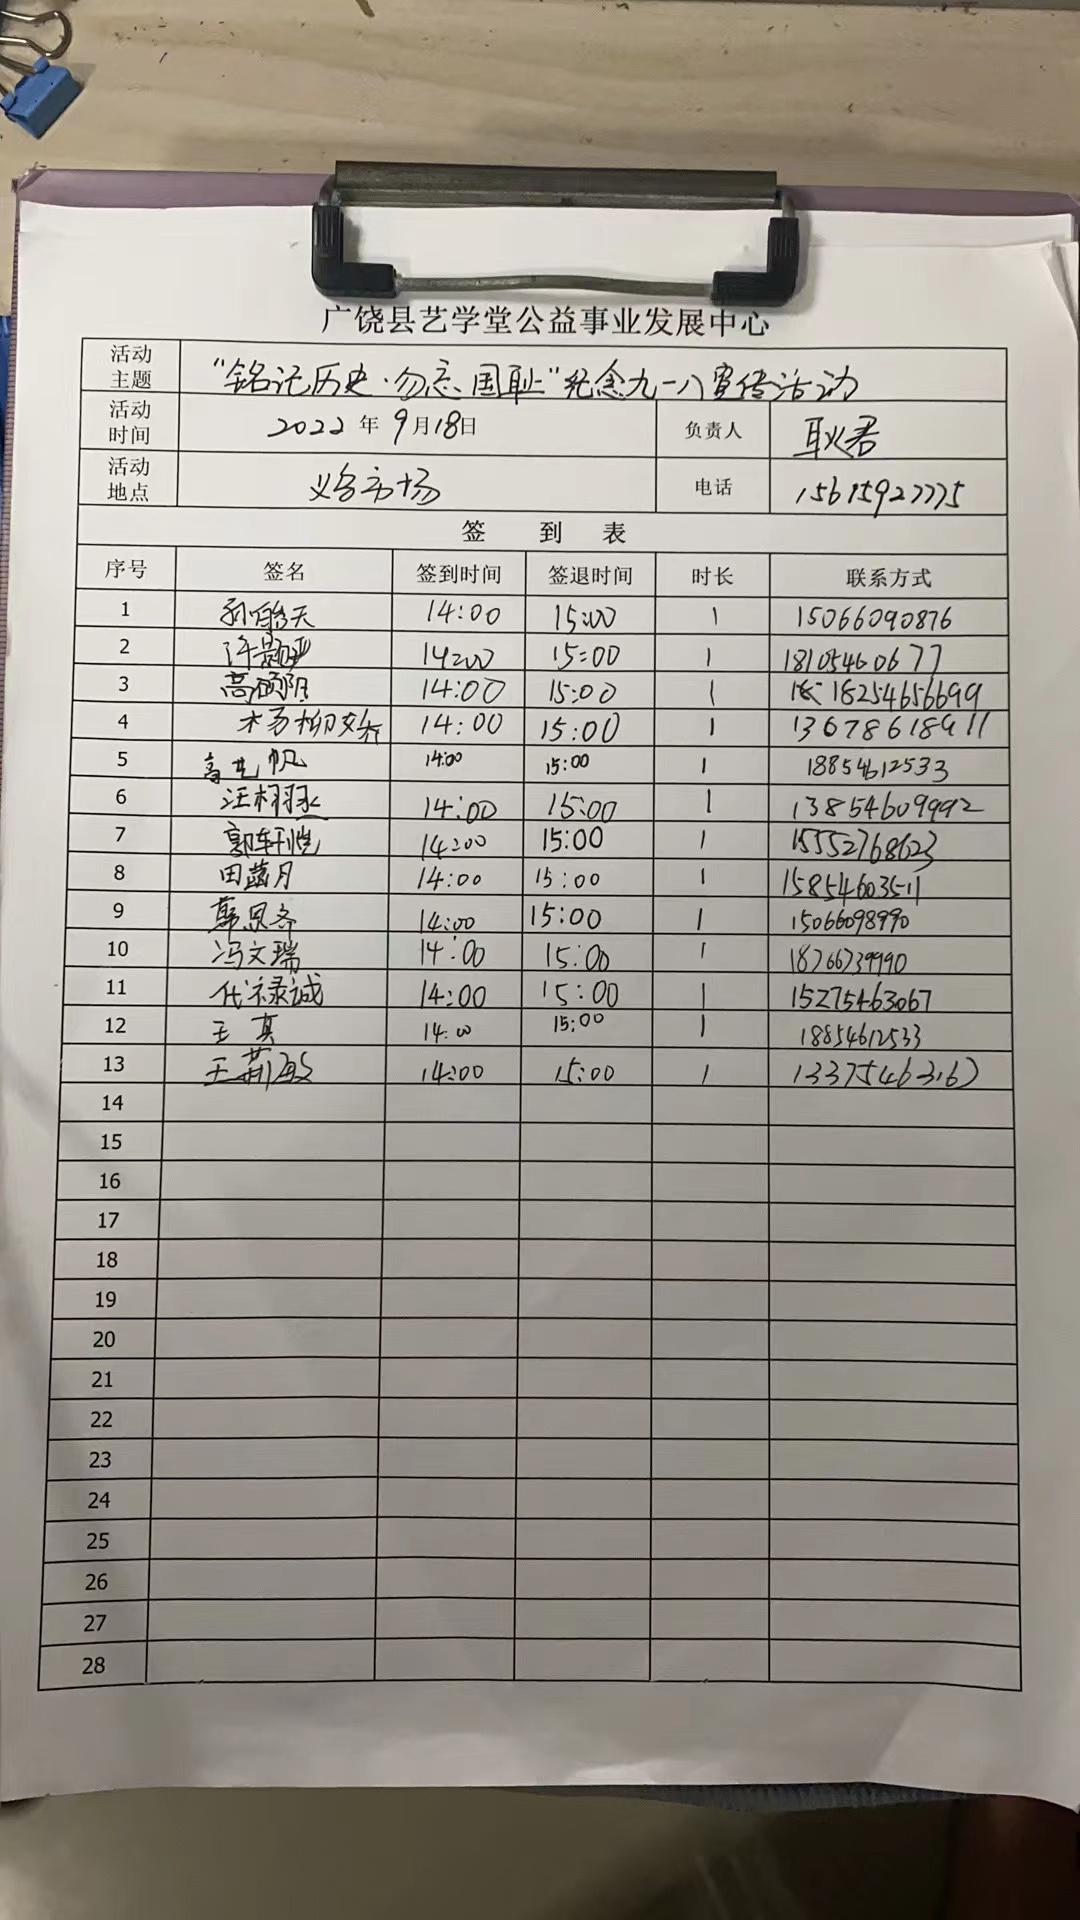 广饶县艺学堂公益事业发展中心
活动主题 “铭记历史·勿忘国耻”纪念九一八宣传活动
活动时间 2022年9月18日 负责人 耿君
活动地点 义乌市场 电话 15615927775
签 到 表
序号 签名 签到时间 签退时间 时长 联系方式
1 孙皓天 14:00 15:00 1 15066090876
2 许颢亚 14:00 15:00 1 18105460677
3 高硕阳 14:00 15:00 1 18254656699
4 杨柳 14:00 15:00 1 13678618911
5 高艺帆 14:00 15:00 1 18854612533
6 汪栩丞 14:00 15:00 1 13854609992
7 郭轩恺 14:00 15:00 1 15552768623
8 田菡月 14:00 15:00 1 15854603511
9 韩恩齐 14:00 15:00 1 15066098990
10 冯文瑞 14:00 15:00 1 18766739990
11 代禄诚 14:00 15:00 1 15275463067
12 王真 14:00 15:00 1 18854612533
13 王莉敏 14:00 15:00 1 13375463167
14
15
16
17
18
19
20
21
22
23
24
25
26
27
28